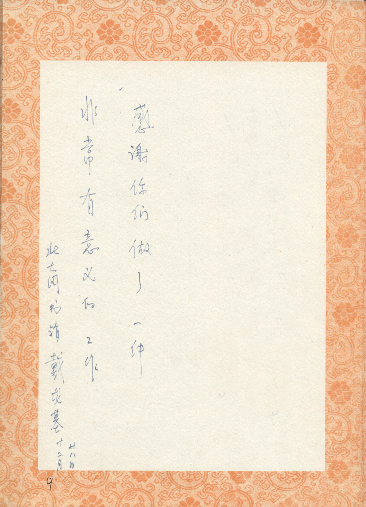 感谢你们做了一种
非常有意义的工作
北大图书馆 戴龙基 十二月廿八日
4